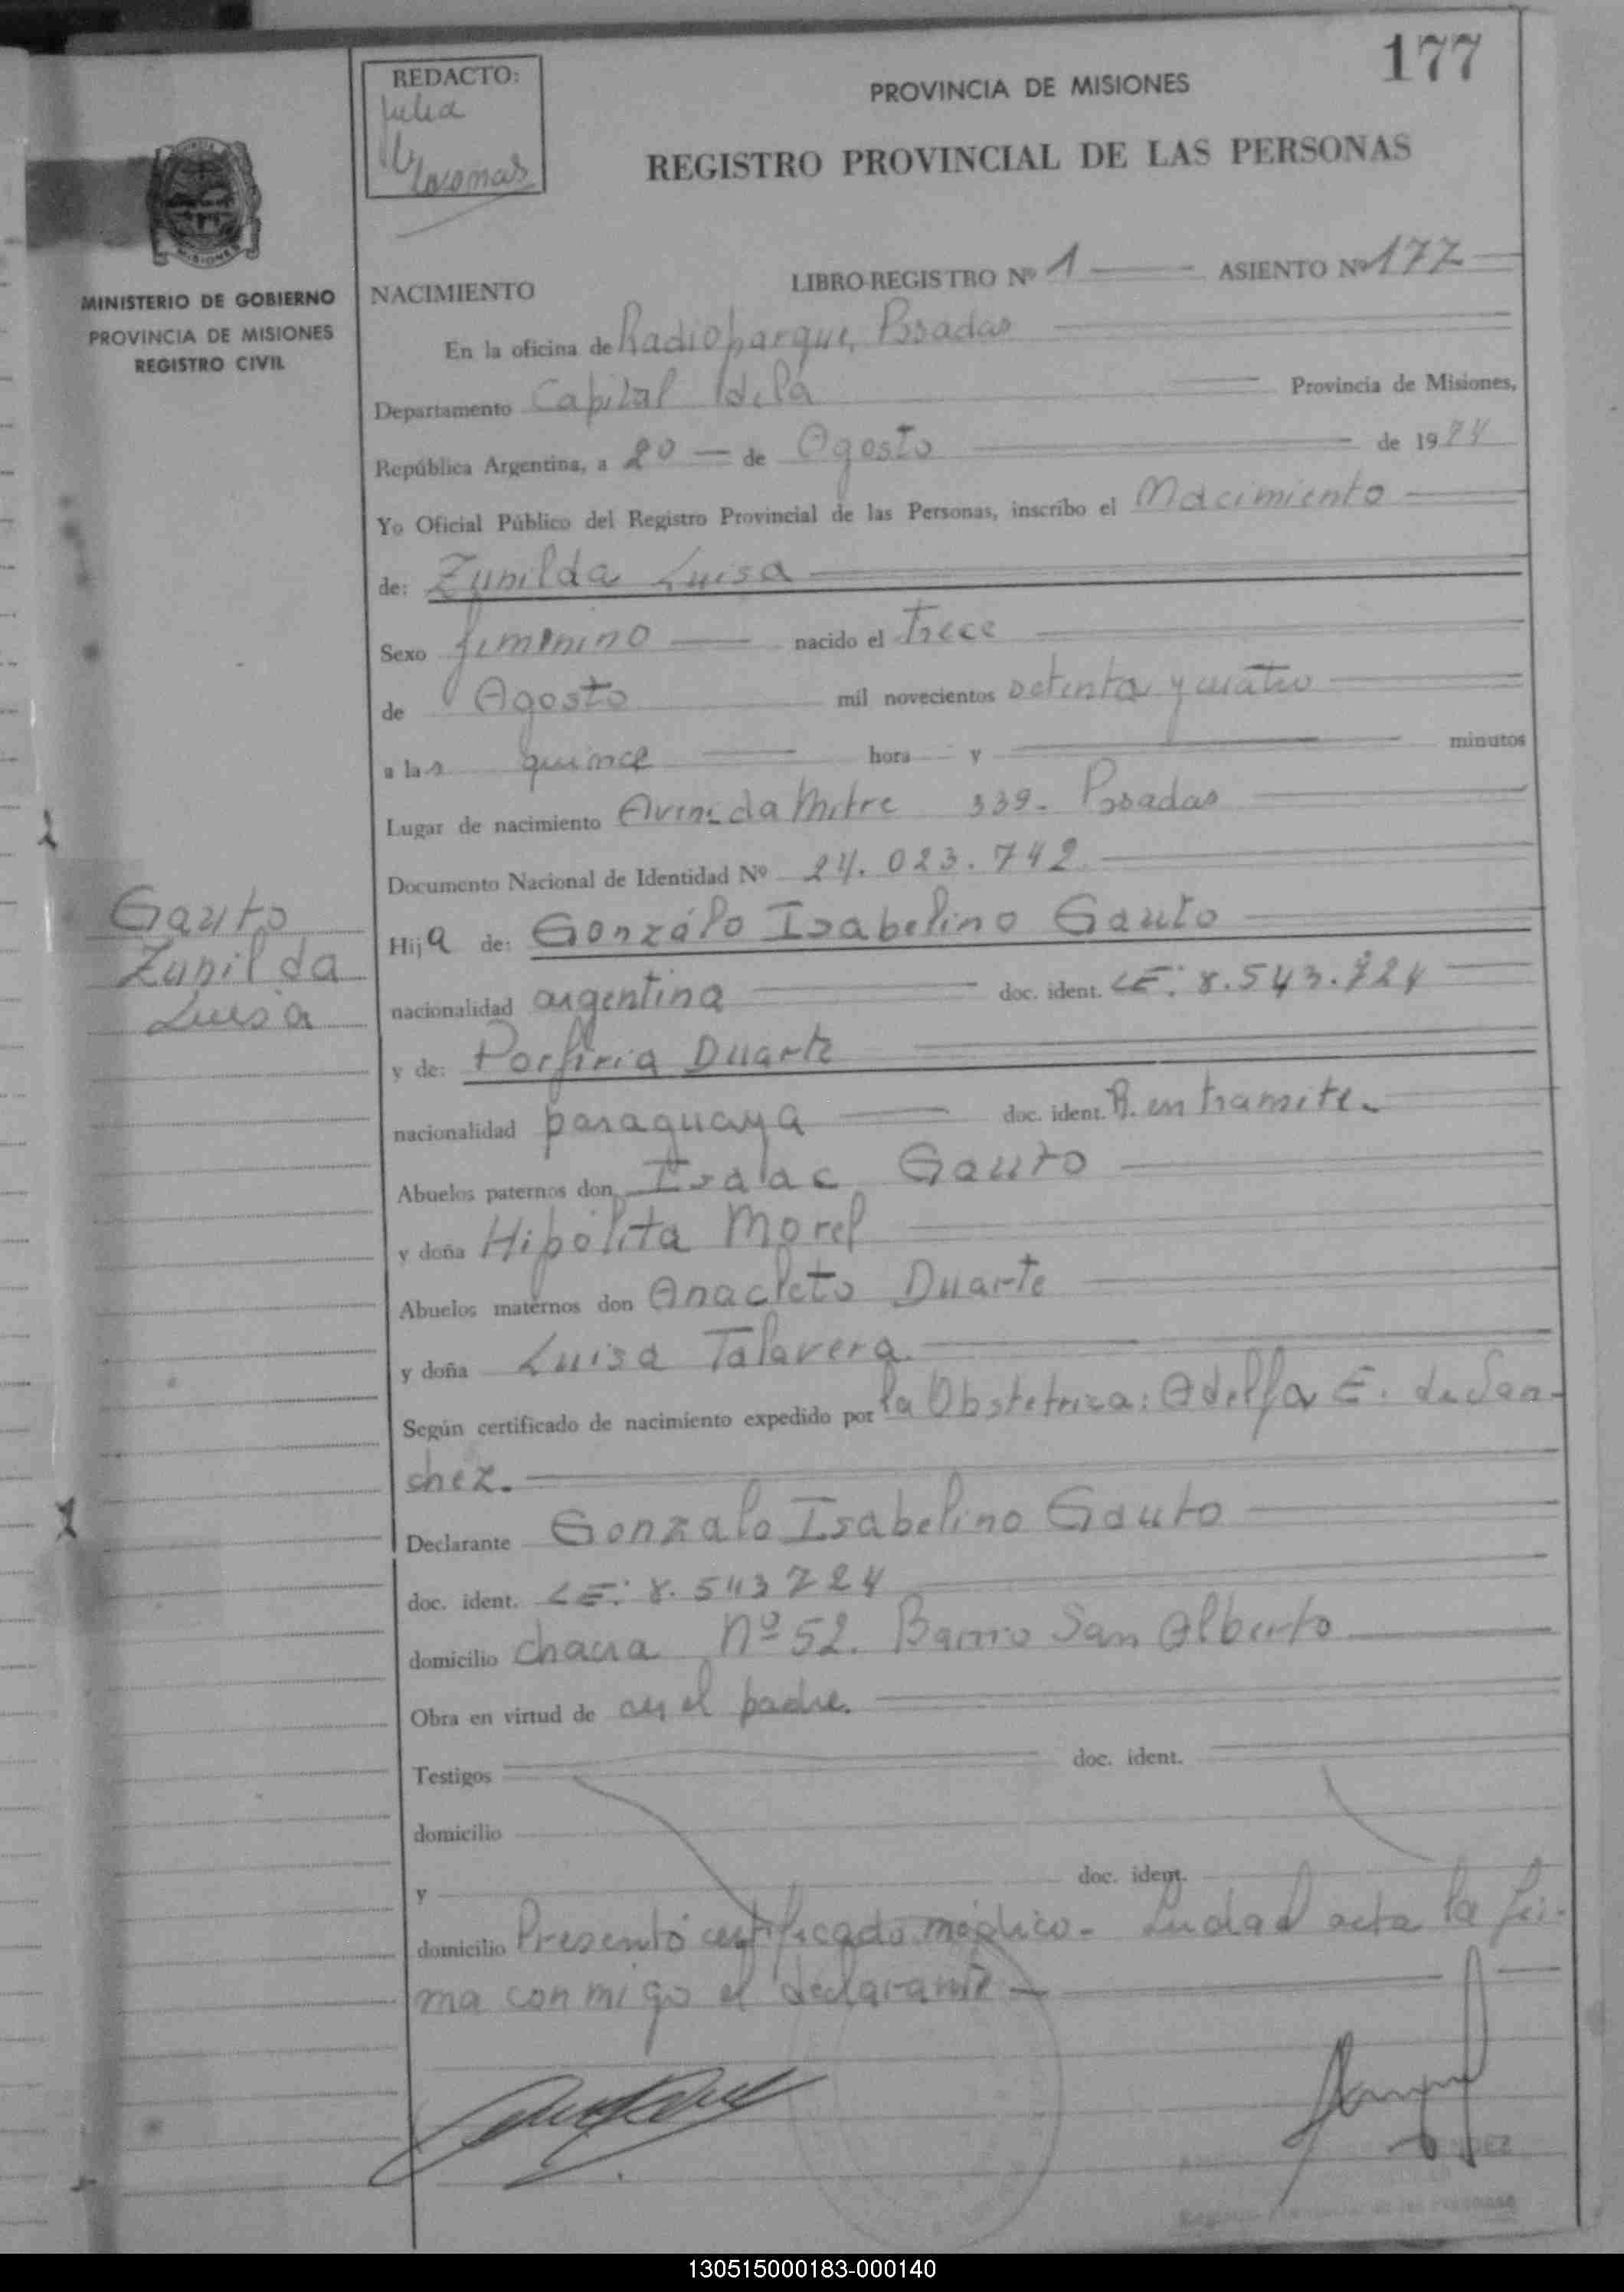 177
REDACTO:
Julia
PROVINCIA DE MISIONES
REGISTRO PROVINCIAL DE LAS PERSONAS
MISIONES
MINISTERIO DE GOBIERNO
PROVINCIA DE MISIONES
REGISTRO CIVIL
NACIMIENTO LIBRO-REGISTRO Nº 1 ASIENTO Nº 177
En la oficina de Radioparque, Posadas
Departamento Capital de la Provincia de Misiones,
República Argentina, a 20 de Agosto de 1974
Yo Oficial Público del Registro Provincial de las Personas, inscribo el Nacimiento
de: Zunilda Luisa
Sexo femenino nacido el Trece
de Agosto mil novecientos setenta y cuatro
a las quince hora y minutos
Lugar de nacimiento Avenida Mitre 339. Posadas
Documento Nacional de Identidad Nº 24.023.742
Gauto
Zunilda
Luisa
Hija de: Gonzálo Isabelino Gauto
nacionalidad argentina doc. ident. LE: 8.543.724
y de: Porfiria Duarte
nacionalidad paraguaya doc. ident. R. en tramite.
Abuelos paternos don Isaac Gauto
y doña Hipólita Morel
Abuelos maternos don Anacleto Duarte
y doña Luisa Talavera
Según certificado de nacimiento expedido por la Obstetriza: Adelfa E. de San-
chez.
Declarante Gonzalo Isabelino Gauto
doc. ident. LE: 8.543724
domicilio chacra Nº 52. Barrio San Alberto
Obra en virtud de ser el padre.
Testigos doc. ident.
domicilio
y doc. ident.
domicilio Presentó certificado médico. Leída el acta la fir-
ma conmigo el declarante
130515000183-000140